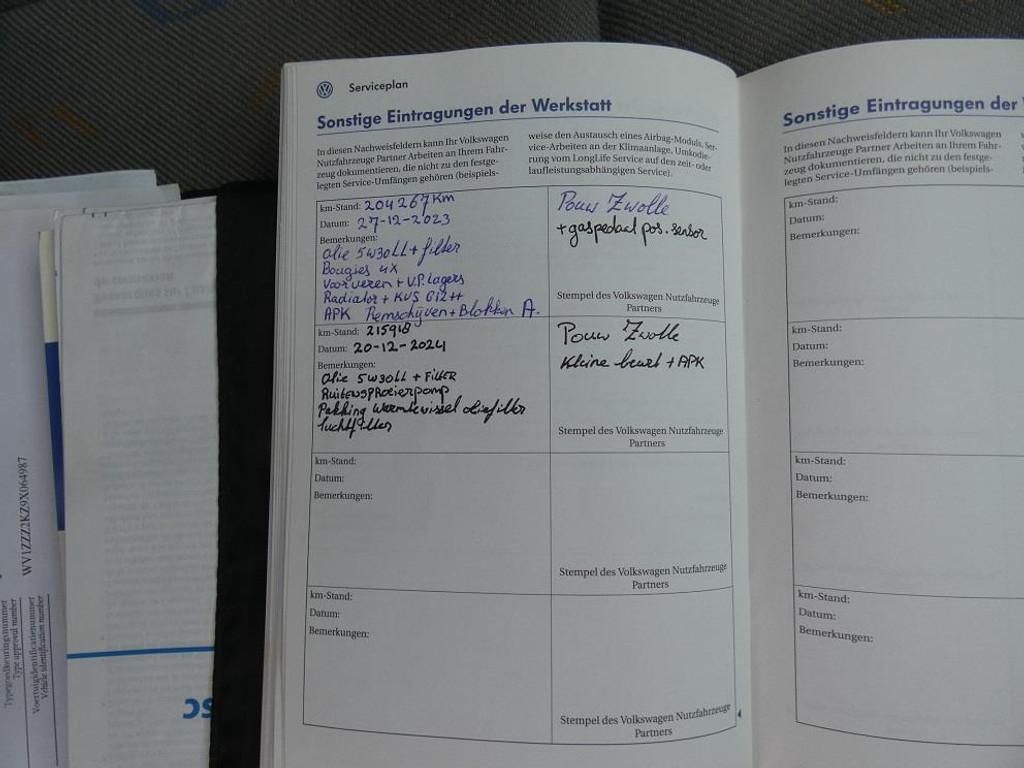 Serviceplan
Sonstige Eintragungen der Werkstatt
In diesen Nachweisfeldern kann Ihr Volkswagen
Nutzfahrzeuge Partner Arbeiten an Ihrem Fahr-
zeug dokumentieren, die nicht zu den festge-
legten Service-Umfängen gehören (beispiels-
weise den Austausch eines Airbag-Moduls, Ser-
vice-Arbeiten an der Klimaanlage, Umkodie-
rung vom LongLife Service auf den zeit- oder
laufleistungsabhängigen Service).
km-Stand: 204267 Km
Datum: 27-12-2023
Bemerkungen:
Olie 5W30LL + filter
Bougies 4X
Voorveren + V.P. lagers
Radiator + KVS G12++
APK Remschijven + Blokken A.
Pouw Zwolle
+ gaspedaal pos. sensor
Stempel des Volkswagen Nutzfahrzeuge
Partners
km-Stand: 215918
Datum: 20-12-2024
Bemerkungen:
Olie 5W30LL + Filter
Ruitensproeierpomp
Pakking warmtewissel oliefilter
luchtfilter
Pouw Zwolle
Kleine beurt + APK
Stempel des Volkswagen Nutzfahrzeuge
Partners
km-Stand:
Datum:
Bemerkungen:
Stempel des Volkswagen Nutzfahrzeuge
Partners
km-Stand:
Datum:
Bemerkungen:
Stempel des Volkswagen Nutzfahrzeuge
Partners
Sonstige Eintragungen der
In diesen Nachweisfeldern kann Ihr Volkswagen
Nutzfahrzeuge Partner Arbeiten an Ihrem Fahr-
zeug dokumentieren, die nicht zu den festge-
legten Service-Umfängen gehören (beispiels-
km-Stand:
Datum:
Bemerkungen:
km-Stand:
Datum:
Bemerkungen:
km-Stand:
Datum:
Bemerkungen:
km-Stand:
Datum:
Bemerkungen:
WV1ZZZ2KZ9X064987
Typegoedkeuringsnummer
Type approval number
Voertuigidentificatienummer
Vehicle identification number